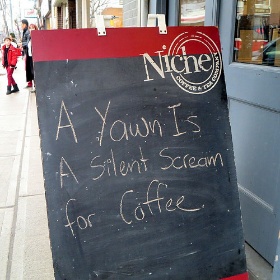 Niche
COFFEE & TEA COMPANY
A Yawn Is
A Silent Scream
for Coffee